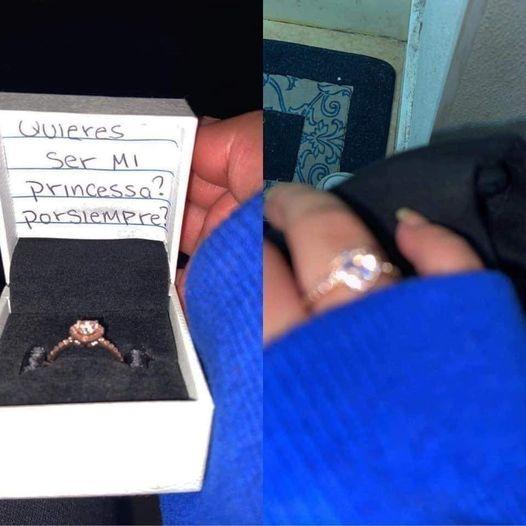 Quieres
Ser Mi
princessa?
porsiempre?